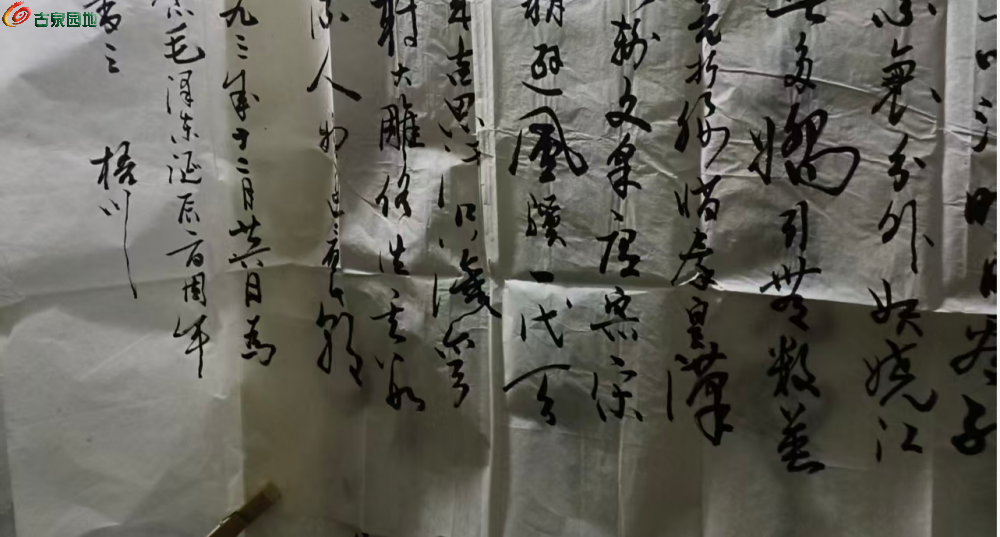 古泉园地
裹分外妖娆江
此多娇引无数英
折腰惜秦皇漢
输文采唐宗宋
逊風骚一代天
吉思汗只识弯弓
射大雕俱往矣数
流人物还看今朝
九三年十二月廿六日为
念毛泽东诞辰百周年
书之
梧川